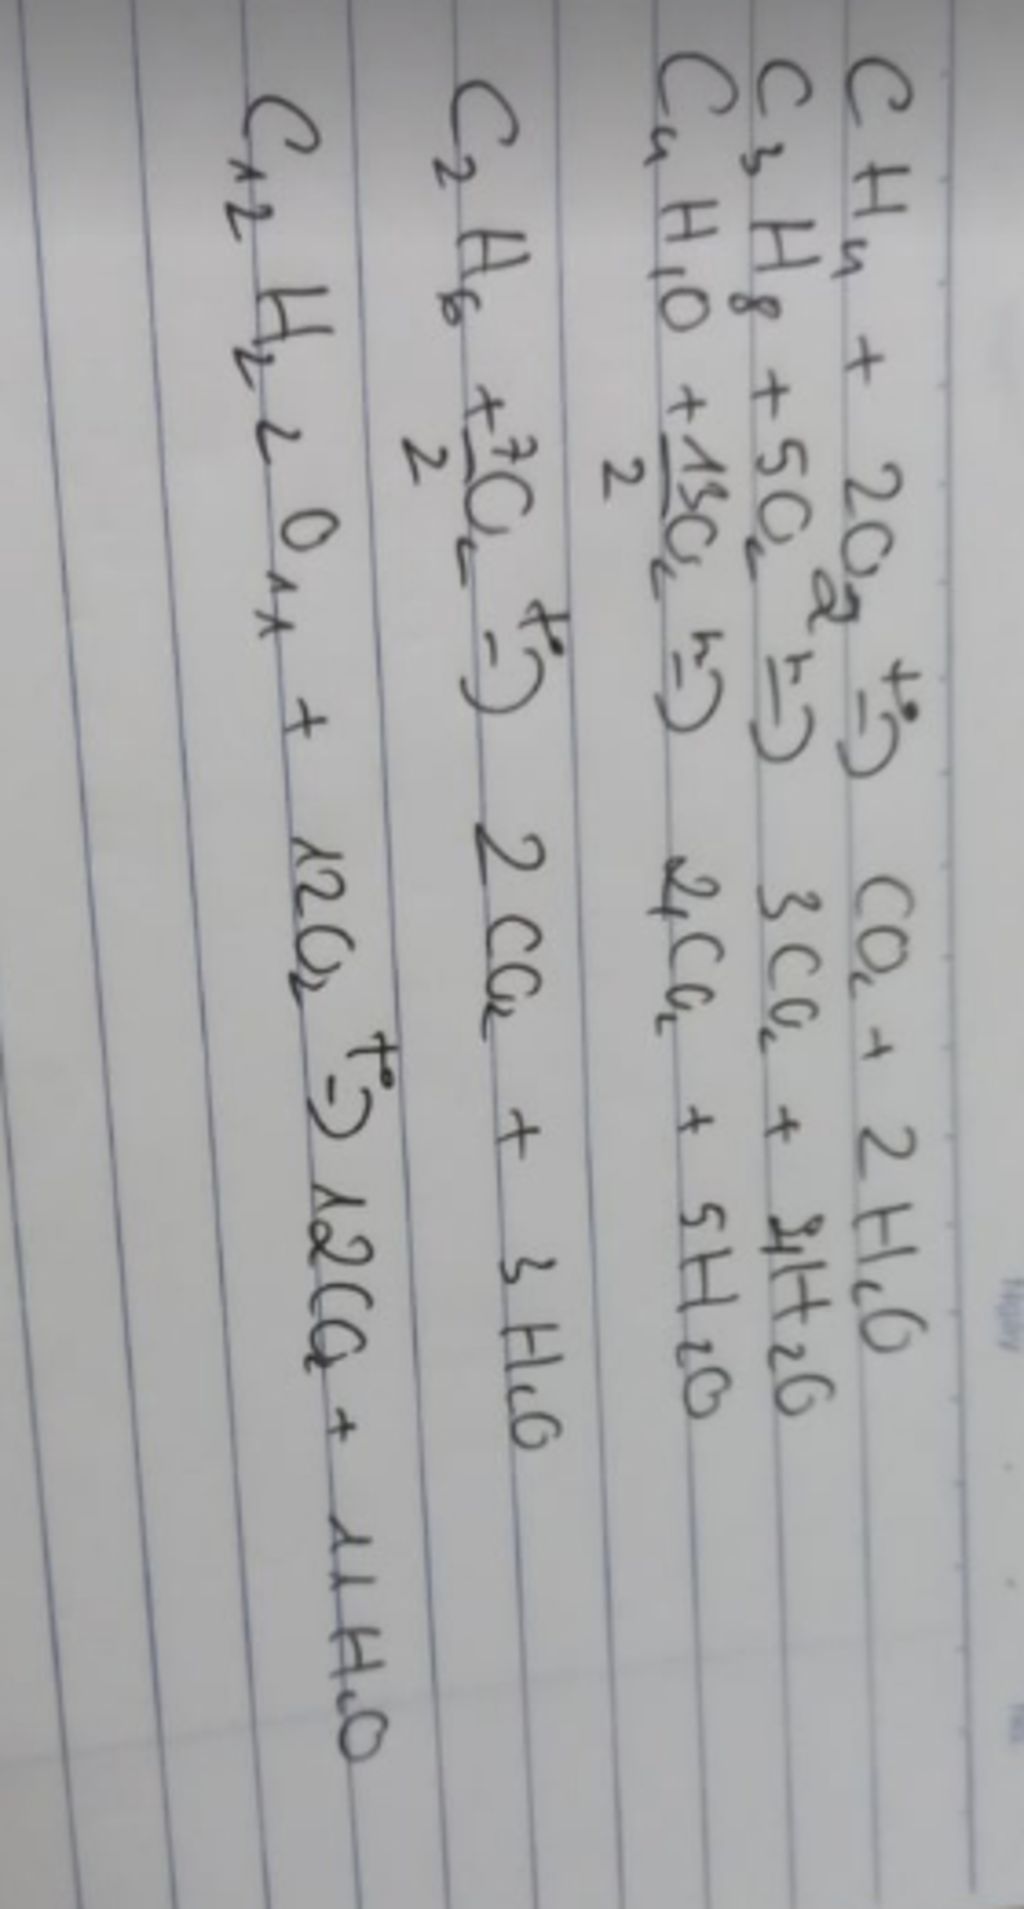 CH₄ + 2O₂ t°→ CO₂ + 2H₂O
C₃H₈ + 5O₂ t→ 3CO₂ + 4H₂O
C₄H₁₀ + 13/2 O₂ t→ 4CO₂ + 5H₂O
C₂H₆ + 7/2 O₂ t°→ 2CO₂ + 3H₂O
C₁₂H₂₂O₁₁ + 12O₂ t°→ 12CO₂ + 11H₂O